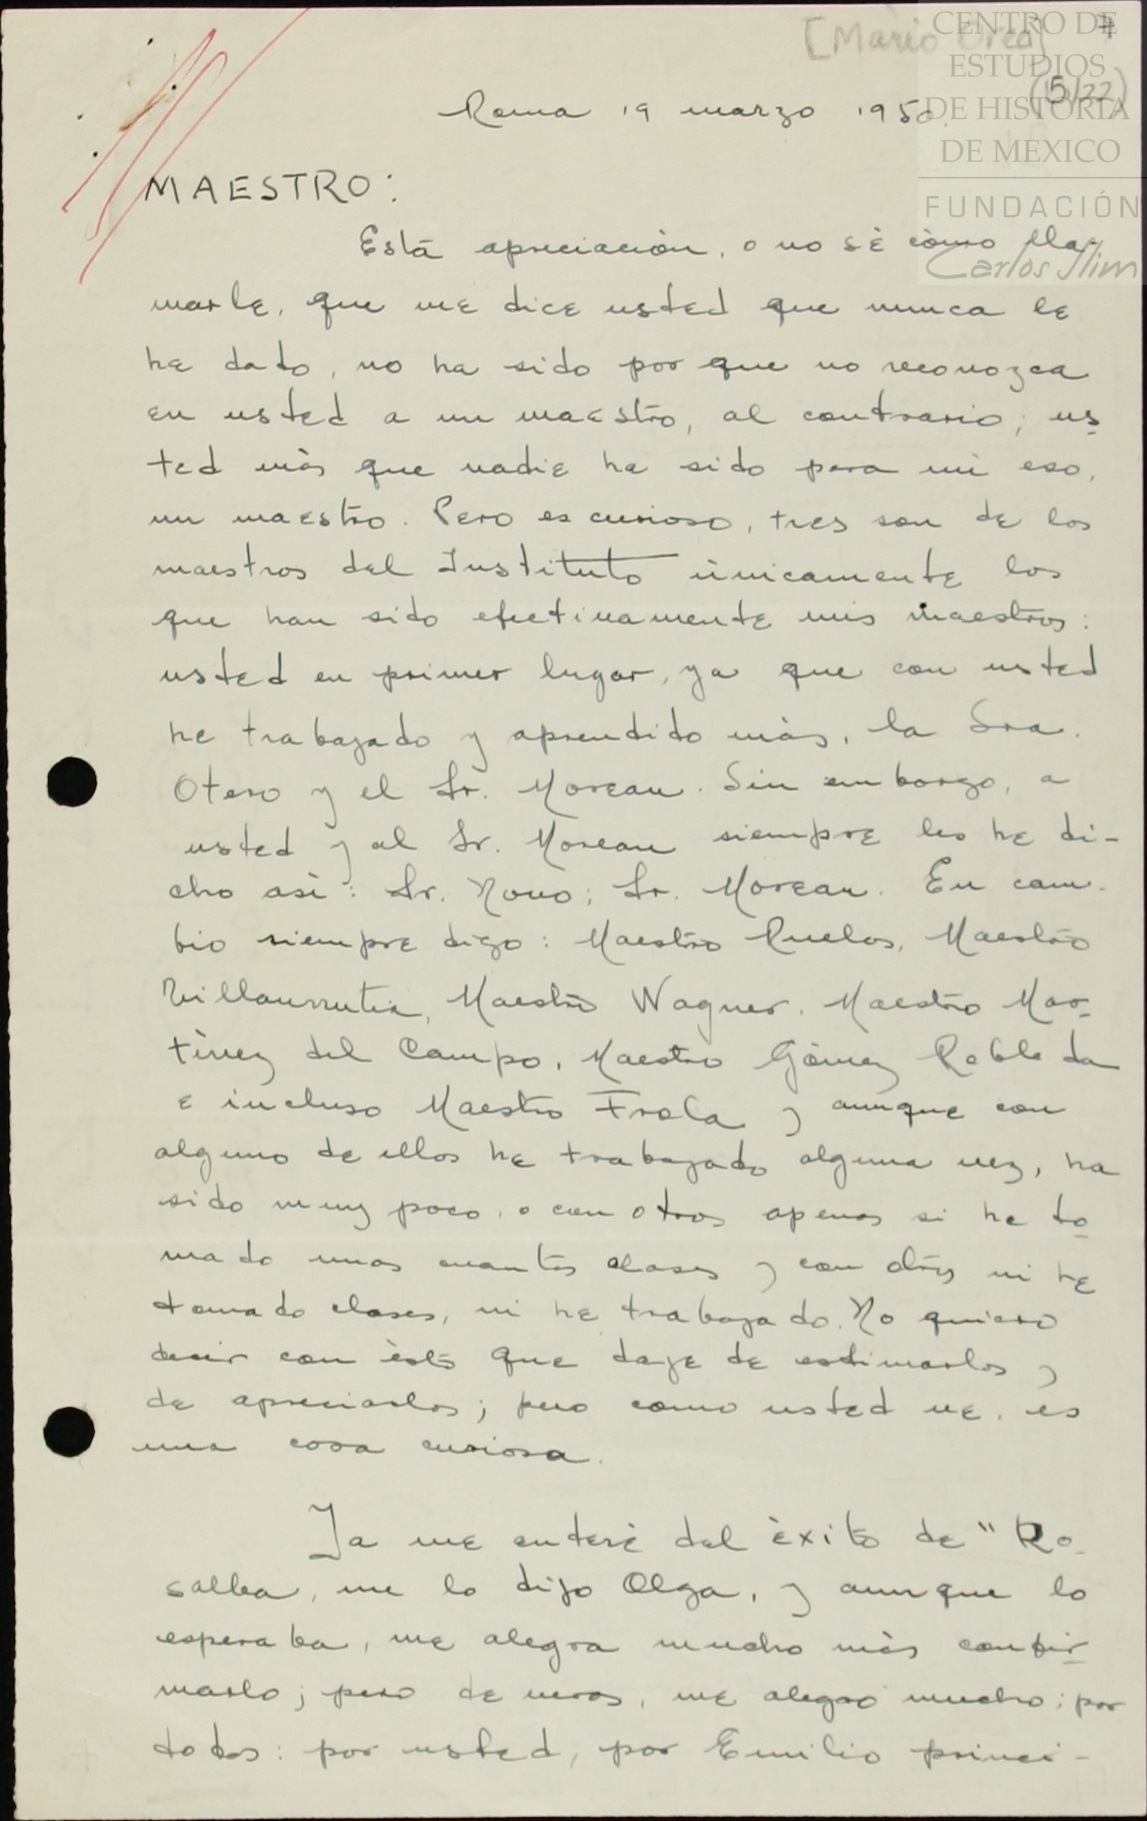 [Mario Orea] 7
CENTRO DE
ESTUDIOS
DE HISTORIA
DE MEXICO
FUNDACIÓN
Carlos Slim
(15/22)
Roma 19 marzo 1950.
MAESTRO:
Está apreciación, o no sé còmo lla-
marle, que me dice usted que nunca le
he dado, no ha sido por que no reconozca
en usted a un maestro, al contrario; us-
ted màs que nadie ha sido para mì eso,
un maestro. Pero es curioso, tres son de los
maestros del Instituto ùnicamente los
que han sido efectivamente mis maestros:
usted en primer lugar, ya que con usted
he trabajado y aprendido màs, la Sra.
Otero y el Sr. Moreau. Sin embargo, a
usted y al Sr. Moreau siempre les he di-
cho asì: Sr. Novo; Sr. Moreau. En cam-
bio siempre digo: Maestro Ruelas, Maestro
Villaurrutia, Maestro Wagner, Maestro Mar-
tìnez del Campo, Maestro Gòmez Robleda
e incluso Maestro Frola y aunque con
alguno de ellos he trabajado alguna vez, ha
sido muy poco, o con otros apenas si he to-
mado unas cuantas clases y con otros ni he
tomado clases, ni he trabajado. No quiero
decir con èsto que deje de estimarlos y
de apreciarlos; pero como usted ve, es
una cosa curiosa.
Ya me enteré del èxito de "Ro-
salba, me lo dijo Olga, y aunque lo
esperaba, me alegra mucho màs confir-
marlo; pero de veras, me alegro mucho; por
todos: por usted, por Emilio princi-